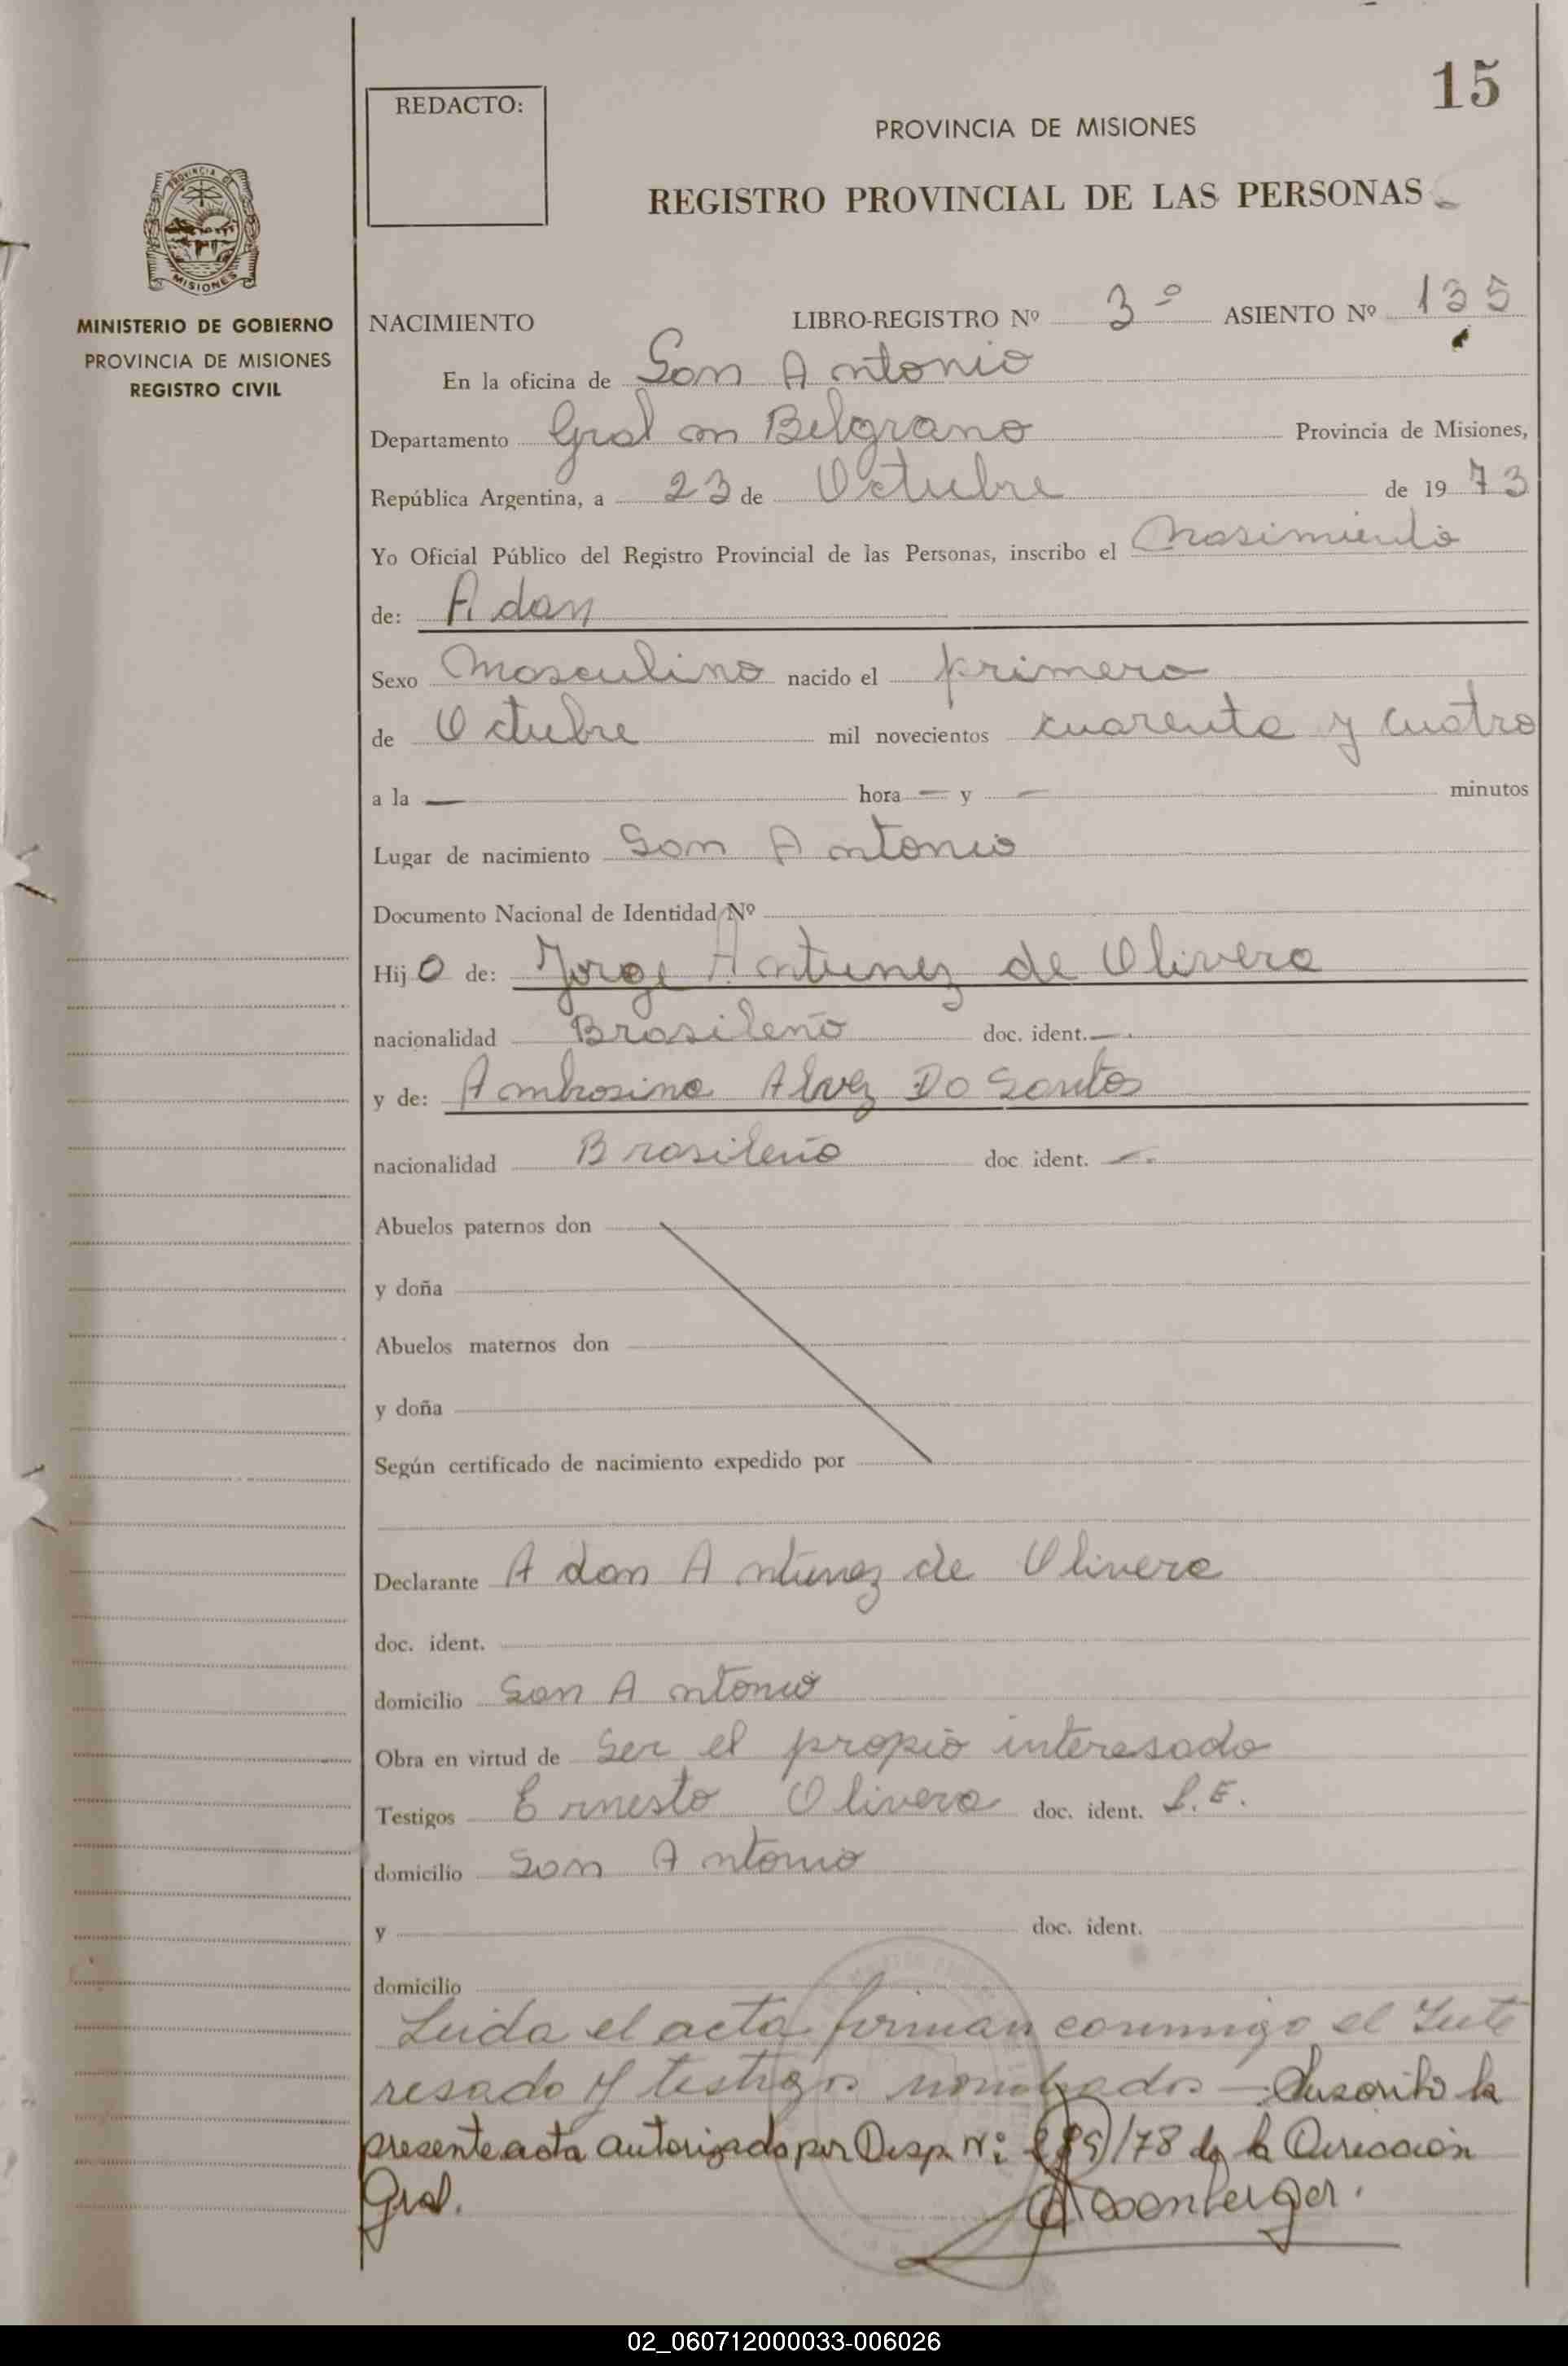 15
REDACTO:
PROVINCIA DE MISIONES
REGISTRO PROVINCIAL DE LAS PERSONAS
PROVINCIA DE
MISIONES
MINISTERIO DE GOBIERNO
PROVINCIA DE MISIONES
REGISTRO CIVIL
NACIMIENTO LIBRO-REGISTRO Nº 3º ASIENTO Nº 135
En la oficina de San Antonio
Departamento Gral m Belgrano Provincia de Misiones,
República Argentina, a 23 de Octubre de 19 73
Yo Oficial Público del Registro Provincial de las Personas, inscribo el Nasimiento
de: Adan
Sexo Masculino nacido el primero
de Octubre mil novecientos cuarenta y cuatro
a la — hora — y — minutos
Lugar de nacimiento San Antonio
Documento Nacional de Identidad Nº
Hij o de: Jorge Antunez de Olivera
nacionalidad Brasileño doc. ident. —.
y de: Ambrosina Alvez Do Santos
nacionalidad Brasileño doc ident. —.
Abuelos paternos don
y doña
Abuelos maternos don
y doña
Según certificado de nacimiento expedido por
Declarante Adan Antunez de Olivera
doc. ident.
domicilio San Antonio
Obra en virtud de Ser el propio interesado
Testigos Ernesto Olivera doc. ident. L.E.
domicilio San Antonio
y doc. ident.
domicilio
Leida el acta firman conmigo el Inte
resado y testigos nombrados — Suscribo la
presente acta autorizado por Disp. Nº /78 de la Dirección
Gral.
02_060712000033-006026